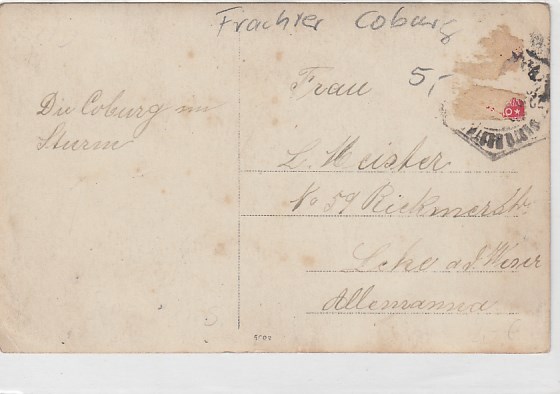 Frachter Coburg
5,-
Die Coburg im
Sturm
Frau
L. Meister
No 59 Rickmerstr.
Lehe a.d. Weser
Allemanha